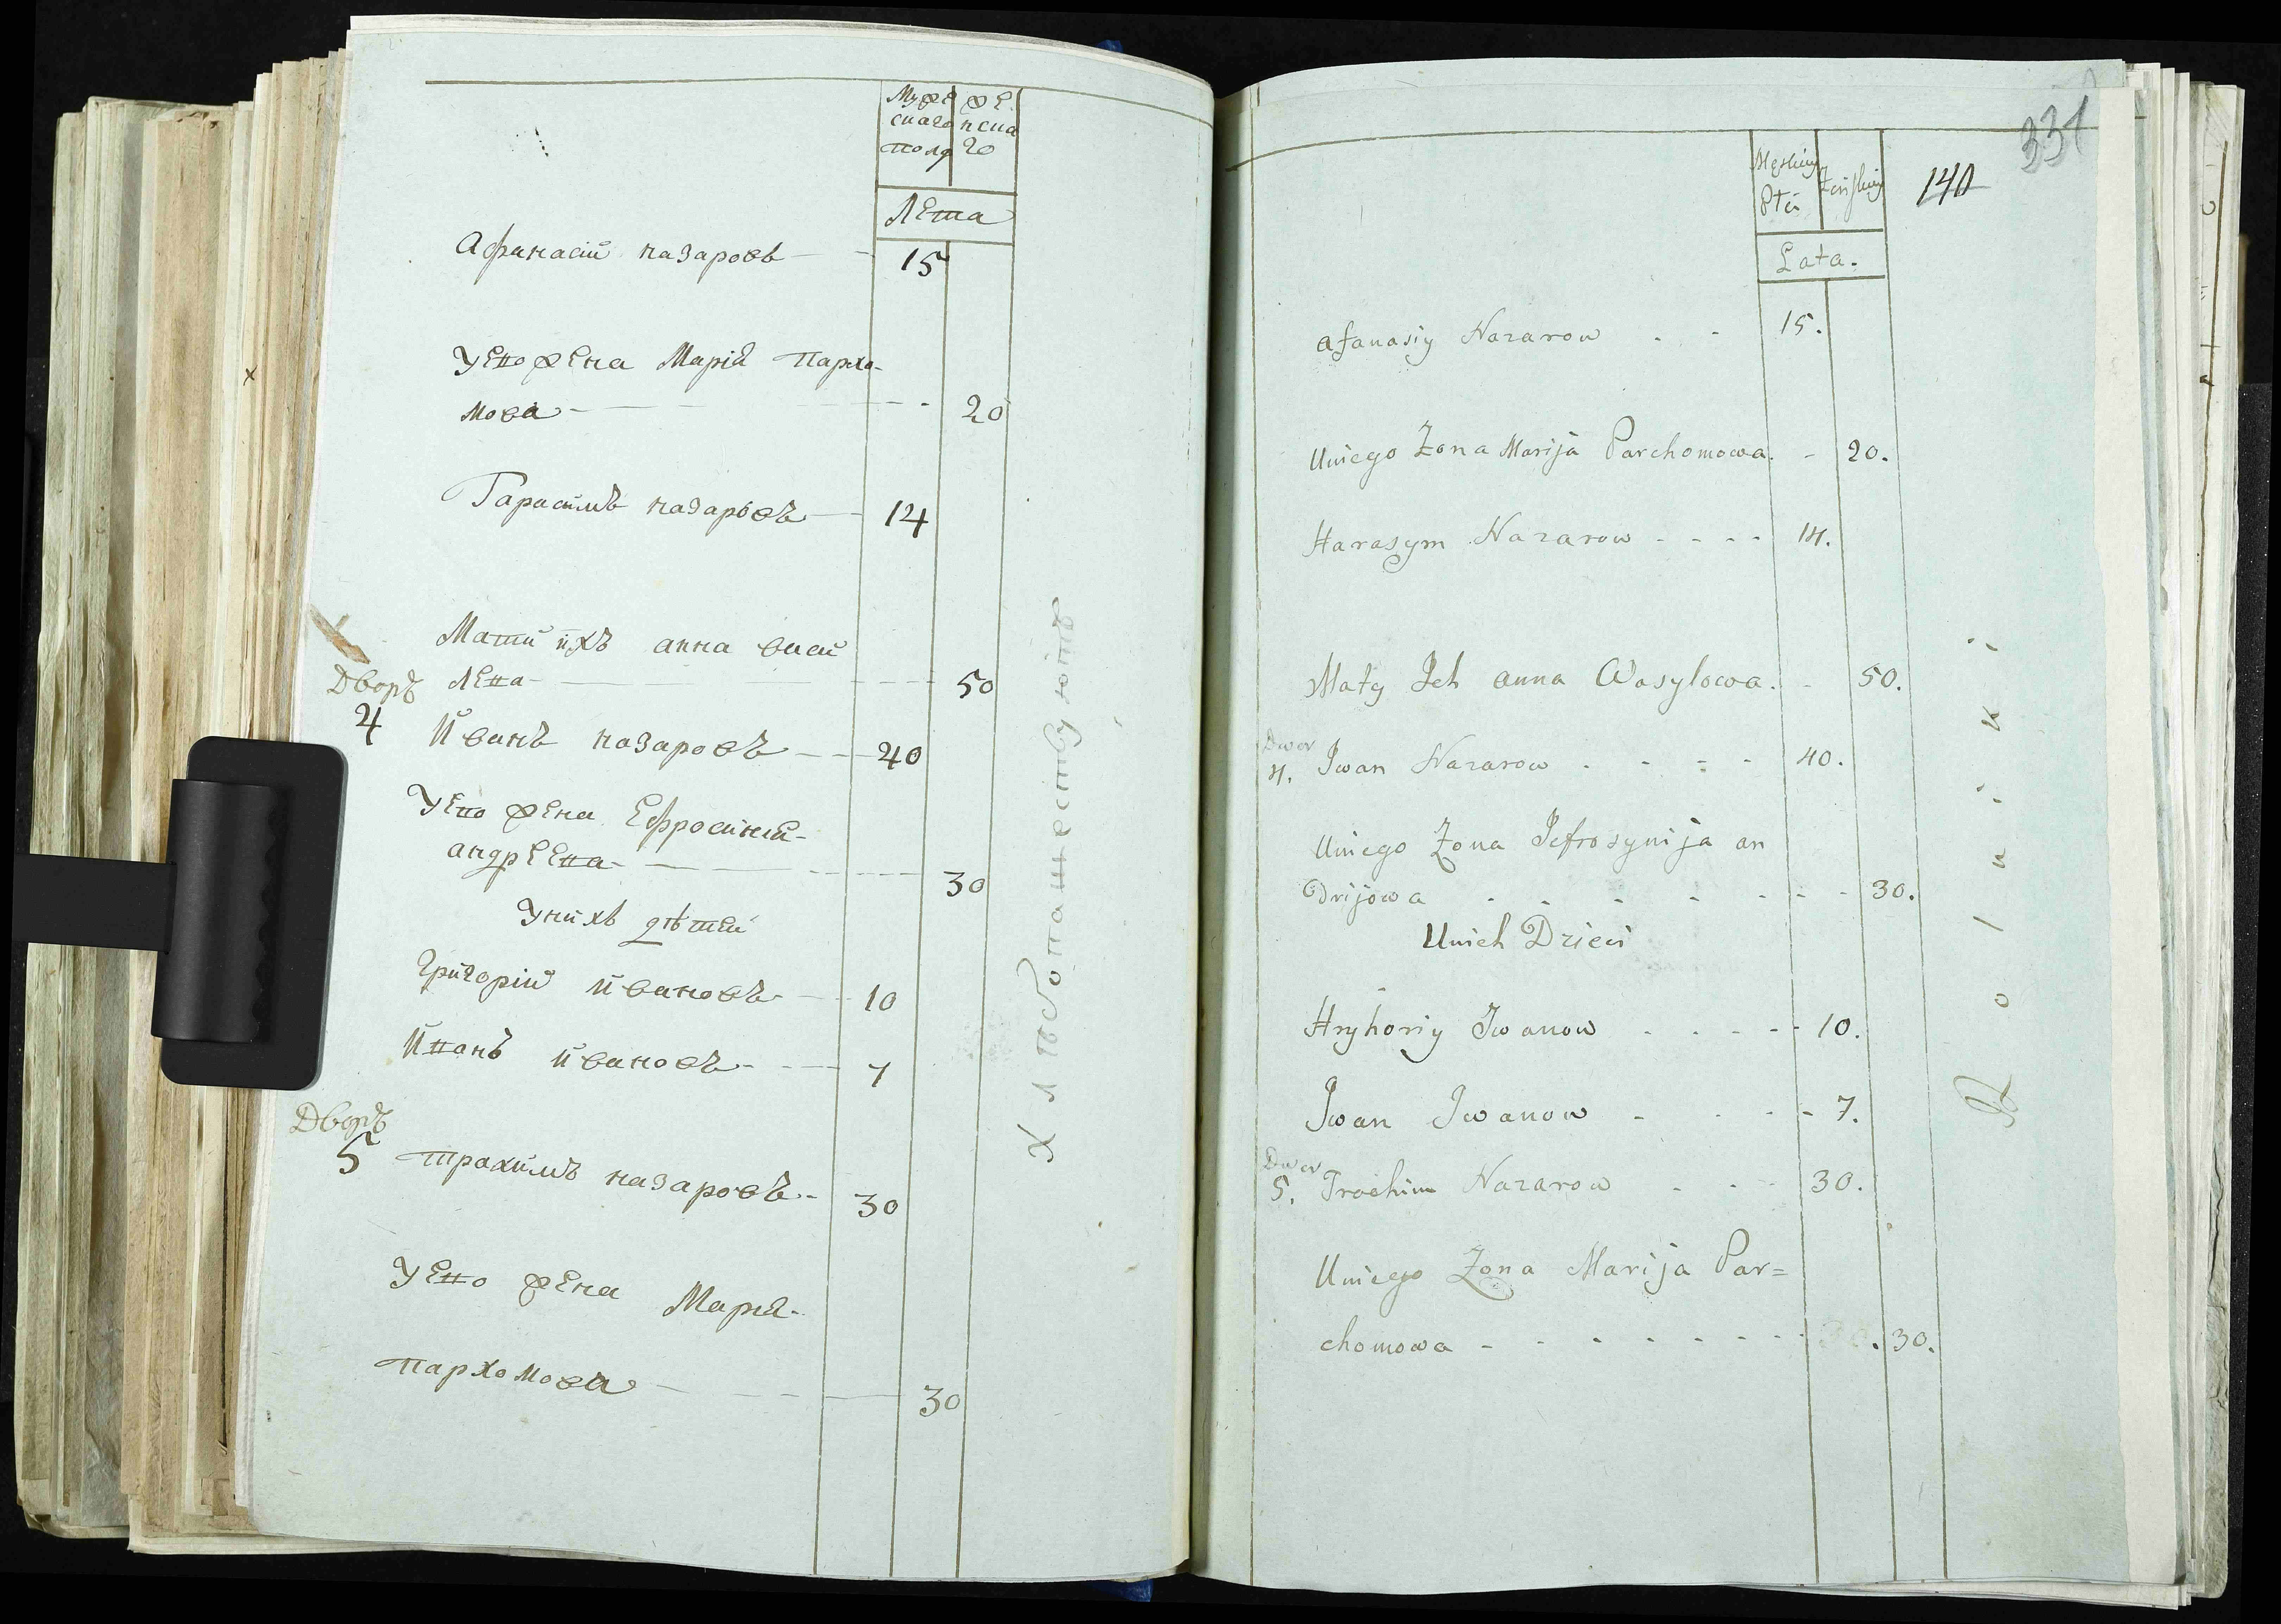 Муже же
скаго нска
полу го
Лета
Афанасий назаровъ 15
Уево жена Мария Пархо-
мова 20
Гарасимъ назаровъ 14
Мати ихъ анна васи
Дворъ лева 50
4 Иванъ назаровъ 40
Уево жена Ефросиния
андреева 30
Унихъ дѣтей
григорий ивановъ 10
Иванъ ивановъ 7
Дворъ
5 трахимъ назаровъ 30
Уево жена Мария
пархомова 30
Хлѣбопашествуютъ
331
140
Męskiey Żeńskiey
Płci
Lata.
Afanasiy Nazarow 15.
Uniego Zona Marija Parchomowa. 20.
Harasym Nazarow 14.
Maty Ich anna Wasylowa. 50.
Dwor
4. Iwan Nazarow 40.
Uniego Zona Jefrosynija an
Drijowa 30.
Unich Dzieci
Hryhoriy Iwanow 10.
Iwan Iwanow 7.
Dwor
5. Trochim Nazarow 30.
Uniego Zona Marija Par=
chomowa 30.
Rolniki